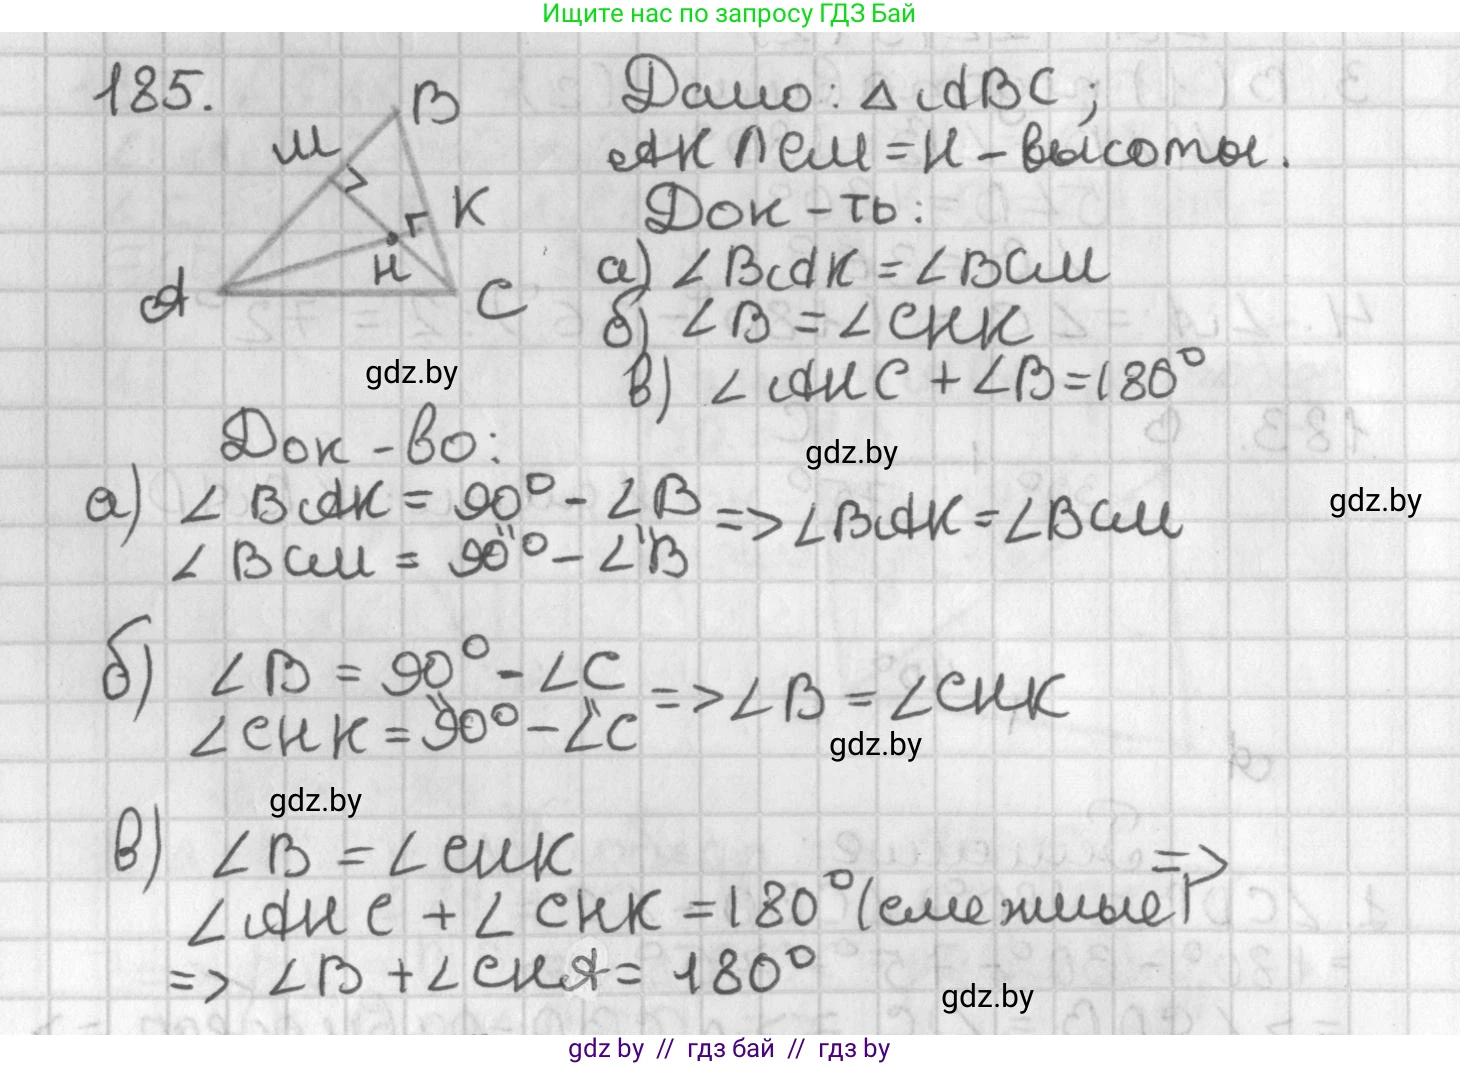 Ищите нас по запросу ГДЗ Бай
185.
B
M
K
H
A
C
Дано: △ABC;
AK ∩ CM = H - высоты.
Док-ть:
а) ∠BAK = ∠BCM
б) ∠B = ∠CHK
в) ∠AHC + ∠B = 180°
gdz.by
Док-во:
gdz.by
а) ∠BAK = 90° - ∠B
∠BCM = 90° - ∠B
=> ∠BAK = ∠BCM
gdz.by
б) ∠B = 90° - ∠C
∠CHK = 90° - ∠C
=> ∠B = ∠CHK
gdz.by
gdz.by
в) ∠B = ∠CHK
∠AHC + ∠CHK = 180° (смежные) =>
=> ∠B + ∠CHA = 180°
gdz.by
gdz by // гдз бай // гдз by